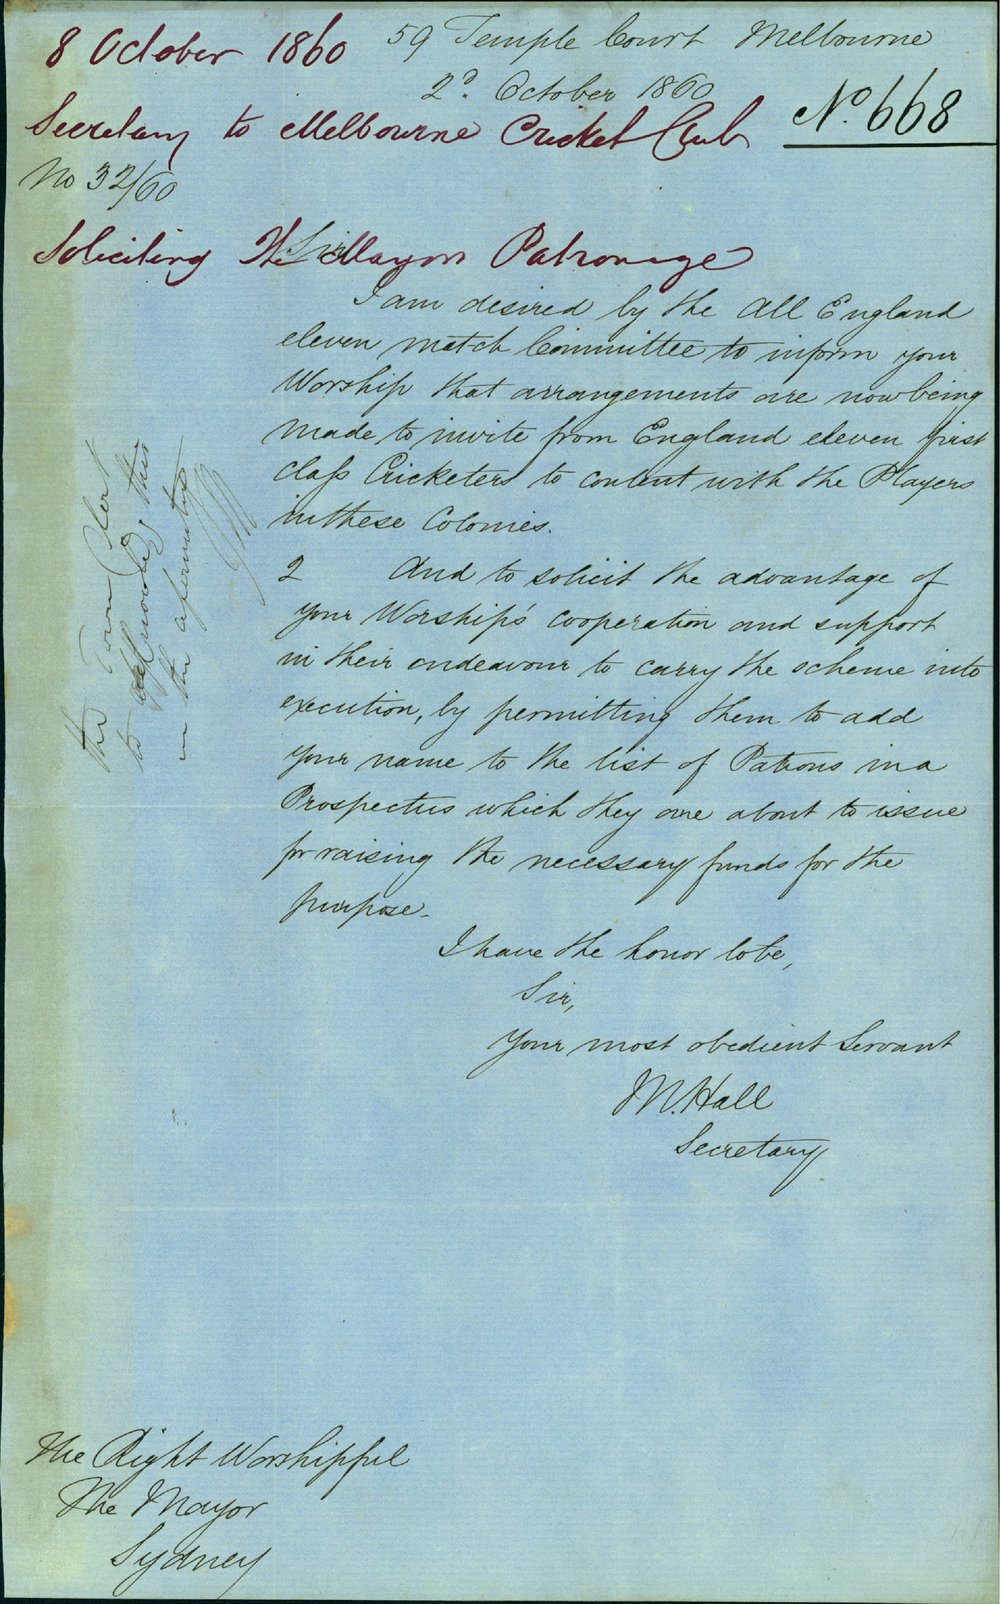 8 October 1860
59 Temple Court Melbourne
2d. October 1860
No. 668
Secretary to Melbourne Cricket Club
No 32/60
Soliciting The Mayors Patronage
Sir
I am desired by the All England
eleven match Committee to inform your
Worship that arrangements are now being
made to invite from England eleven first
class Cricketers to contend with the Players
in these Colonies.
2 And to solicit the advantage of
your Worship's cooperation and support
in their endeavour to carry the scheme into
execution, by permitting them to add
your name to the list of Patrons in a
Prospectus which they are about to issue
for raising the necessary funds for the
purpose-
I have the honor to be,
Sir,
Your most obedient Servant
M. Hall
Secretary
The Town Clerk
to acknowledge this
in the affirmative
The Right Worshipful
The Mayor
Sydney